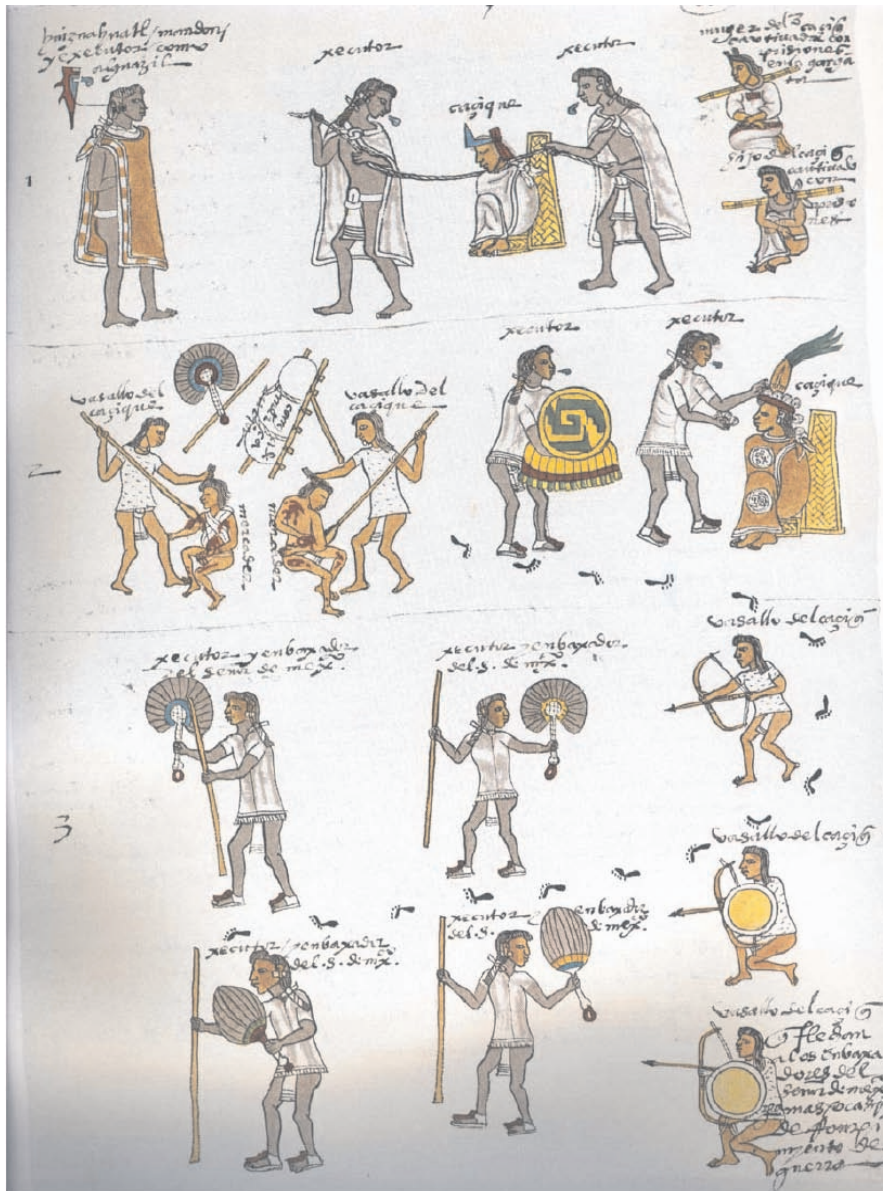 huiznahuatl / mandon
y executor como
alguazil
xecutor
xecutor
caçique
muger del caçiq
cautivada con
prisiones
en la garga
ta
hijo del caçiq
cautivado
con
prisio
nes
1
vasallo del
caçique
vasallo del
caçique
mercader
mercader
xecutor
xecutor
caçique
2
xecutor y enbaxador
del señor de mexco
xecutor y enbaxador
del . s . de mexco.
vasallo del caçiq
3
vasallo del caçiq
xecutor / y enbaxador
del . s . de mexco.
xecutor y enbaxador
del . s . de mexco.
vasallo del caçiq
a los enbaxa
dores del
señor de mexco
de rompi
miento de
guerra